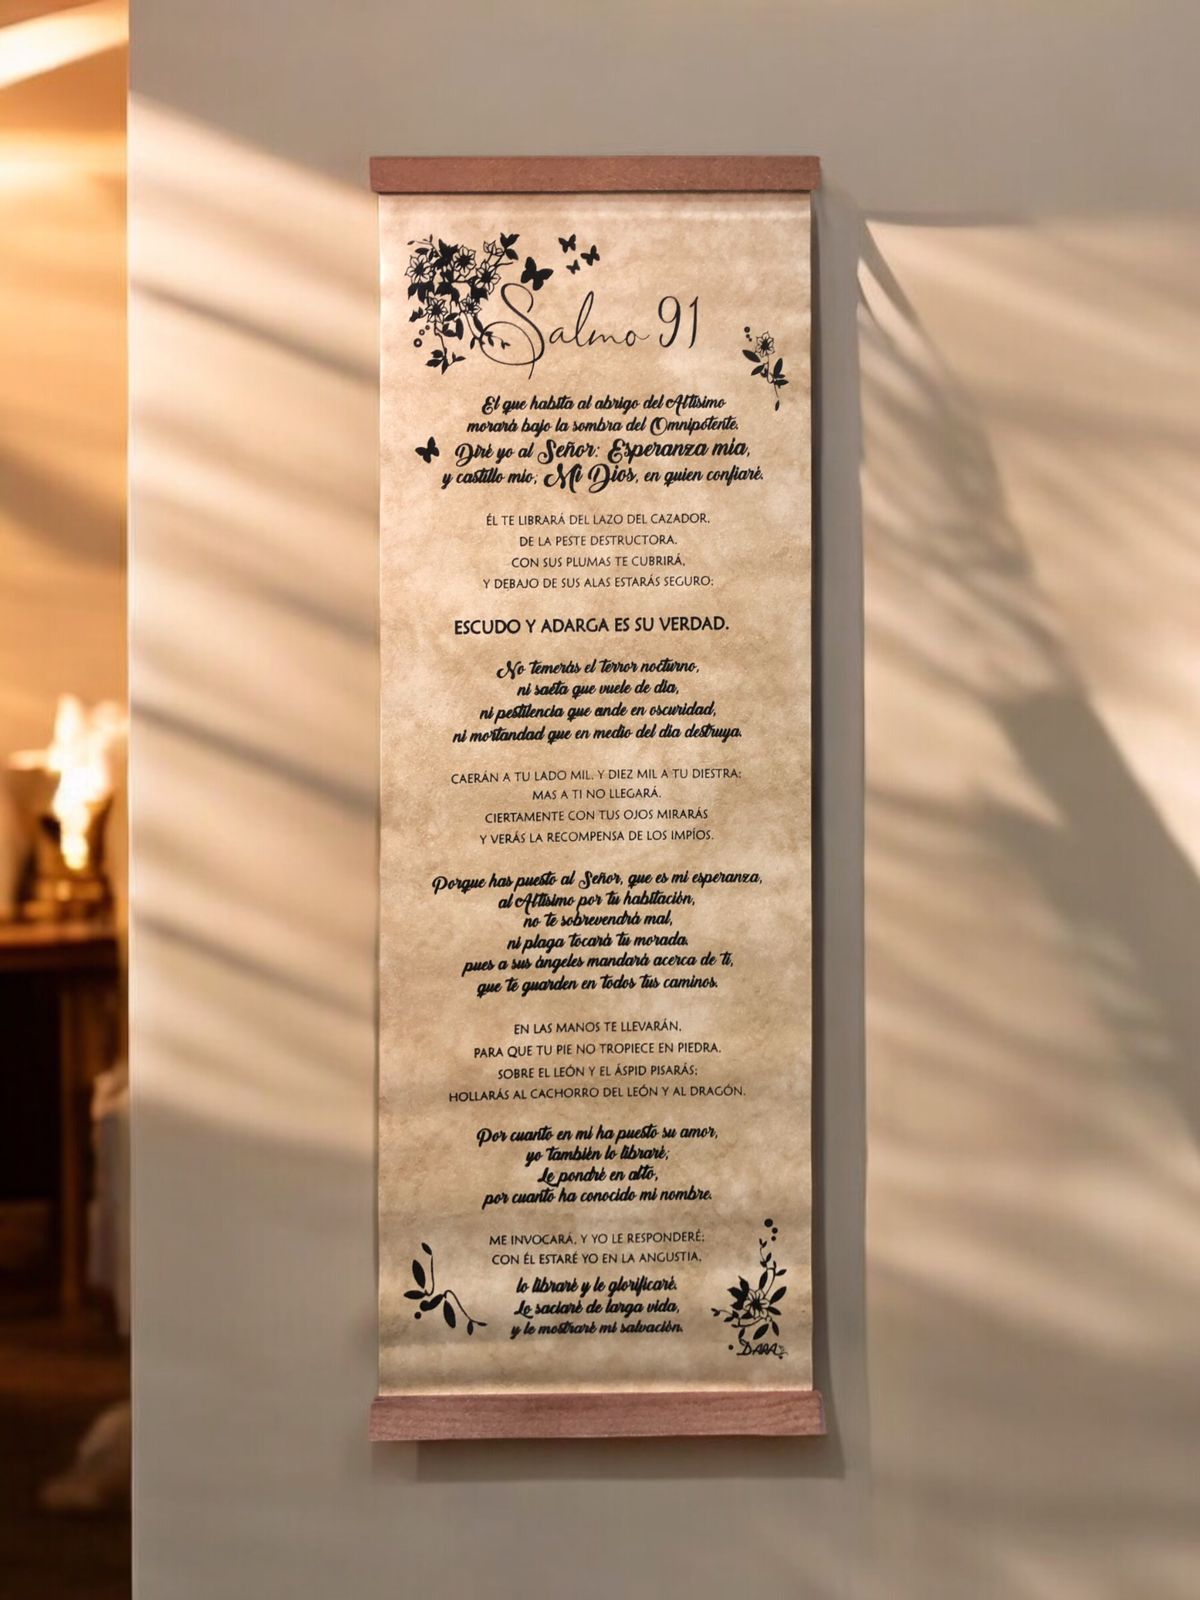 Salmo 91
El que habita al abrigo del Altísimo
morará bajo la sombra del Omnipotente.
Diré yo al Señor: Esperanza mía,
y castillo mío; Mi Dios, en quien confiaré.
ÉL TE LIBRARÁ DEL LAZO DEL CAZADOR,
DE LA PESTE DESTRUCTORA.
CON SUS PLUMAS TE CUBRIRÁ,
Y DEBAJO DE SUS ALAS ESTARÁS SEGURO;
ESCUDO Y ADARGA ES SU VERDAD.
No temerás el terror nocturno,
ni saeta que vuele de día,
ni pestilencia que ande en oscuridad,
ni mortandad que en medio del día destruya.
CAERÁN A TU LADO MIL, Y DIEZ MIL A TU DIESTRA;
MAS A TI NO LLEGARÁ.
CIERTAMENTE CON TUS OJOS MIRARÁS
Y VERÁS LA RECOMPENSA DE LOS IMPÍOS.
Porque has puesto al Señor, que es mi esperanza,
al Altísimo por tu habitación,
no te sobrevendrá mal,
ni plaga tocará tu morada.
pues a sus ángeles mandará acerca de ti,
que te guarden en todos tus caminos.
EN LAS MANOS TE LLEVARÁN,
PARA QUE TU PIE NO TROPIECE EN PIEDRA.
SOBRE EL LEÓN Y EL ÁSPID PISARÁS;
HOLLARÁS AL CACHORRO DEL LEÓN Y AL DRAGÓN.
Por cuanto en mí ha puesto su amor,
yo también lo libraré;
Le pondré en alto,
por cuanto ha conocido mi nombre.
ME INVOCARÁ, Y YO LE RESPONDERÉ;
CON ÉL ESTARÉ YO EN LA ANGUSTIA,
lo libraré y le glorificaré.
Lo saciaré de larga vida,
y le mostraré mi salvación.